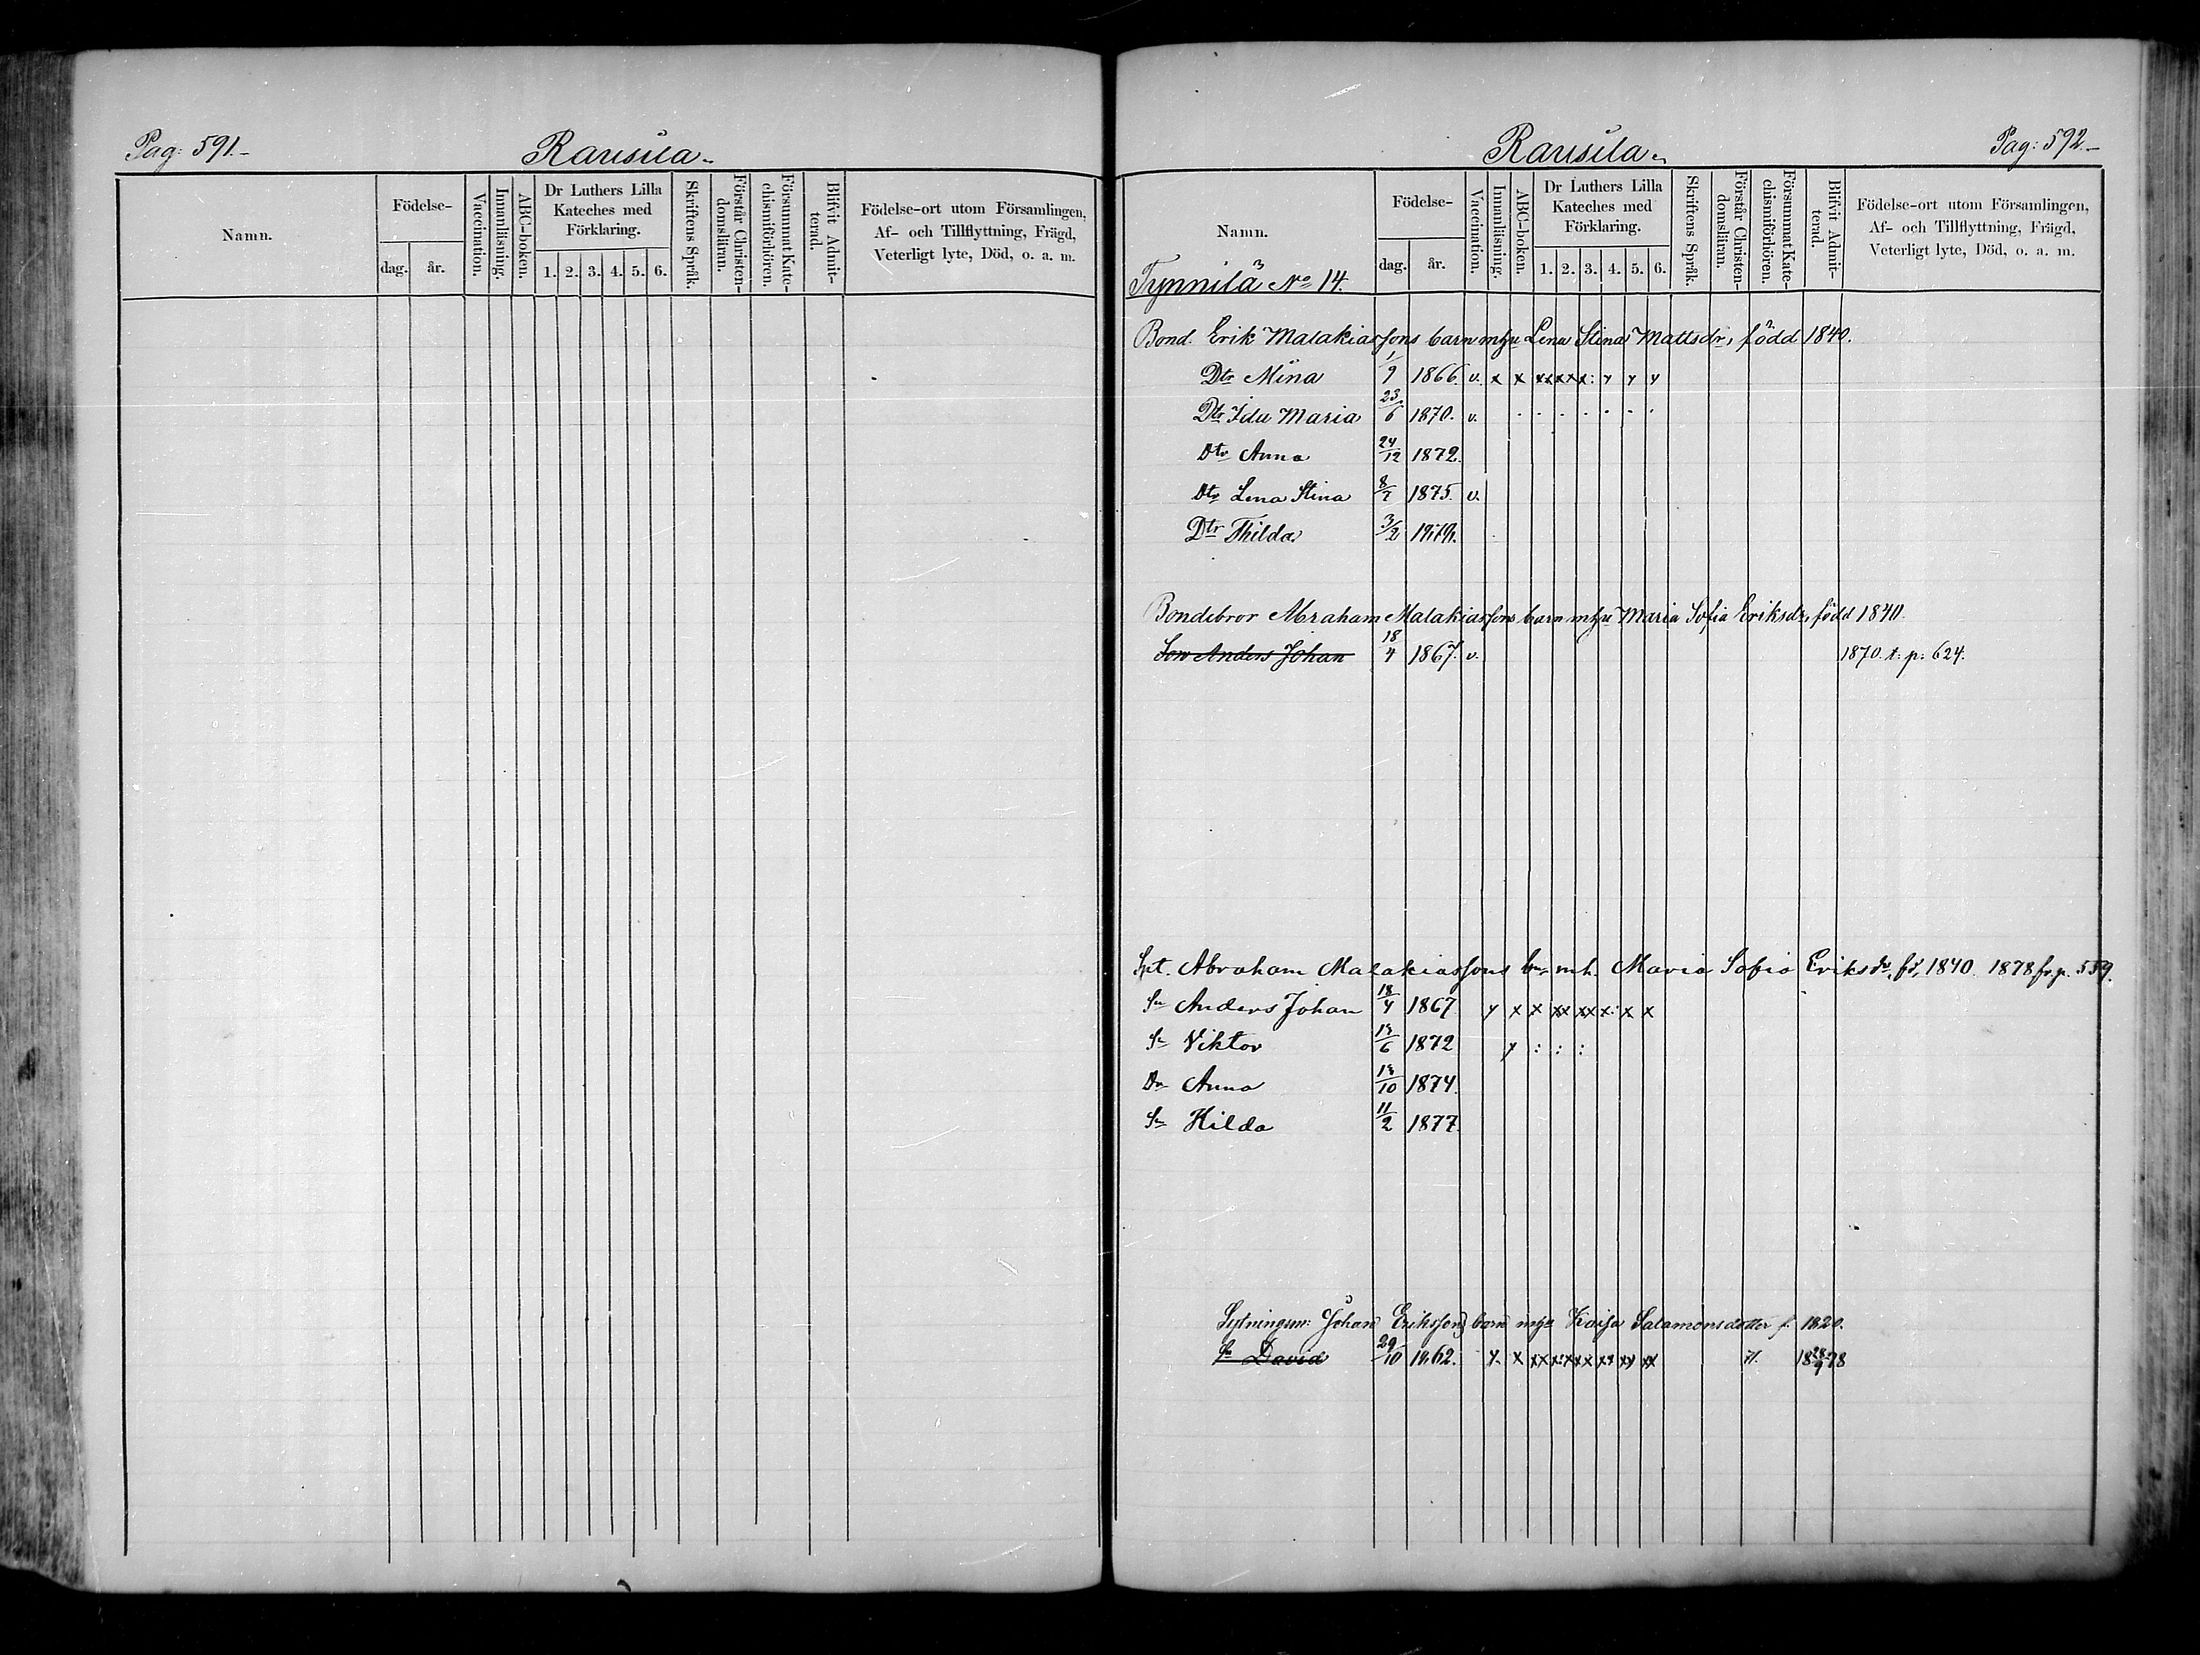 Pag: 591.-
Rausila.
Namn.
Födelse-
dag.
år.
Vaccination.
Innanläsning.
ABC-boken.
Dr Luthers Lilla Kateches med Förklaring.
1. 2. 3. 4. 5. 6.
Skriftens Språk.
Förstår Christen-domsläran.
Försummat Kate-chismiförhören.
Blifvit Admit-terad.
Födelse-ort utom Församlingen,
Af- och Tillflyttning, Frägd,
Veterligt lyte, Död, o. a. m.
Rausila.
Pag: 592.-
Namn.
Födelse-
dag.
år.
Vaccination.
Innanläsning.
ABC-boken.
Dr Luthers Lilla Kateches med Förklaring.
1. 2. 3. 4. 5. 6.
Skriftens Språk.
Förstår Christen-domsläran.
Försummat Kate-chismiförhören.
Blifvit Admit-terad.
Födelse-ort utom Församlingen,
Af- och Tillflyttning, Frägd,
Veterligt lyte, Död, o. a. m.
Tynnilä No 14.
Bond. Erik Malakiassons barn mhu Lena Stina Mattsdr, född 1840.
Dtr Mina 1/9 1866. v. x x xx xx x: y y y
Dtr Ida Maria 23/6 1870. v.
Dtr Anna 24/12 1872.
Dtr Lena Stina 8/7 1875. v.
Dtr Thilda 3/2 1879.
Bondebror Abraham Malakiassons barn mhu Maria Sofia Eriksdr, född 1840.
Son Anders Johan 18/4 1867. v. 1870. t. p. 624.
Spt. Abraham Malakiassons bn mh. Maria Sofia Eriksdr, fd, 1840. 1878 fr. p. 559.
Sn Anders Johan 18/4 1867 y x x xx xx x: x x
Sn Viktor 18/6 1872 y : : :
Dr Anna 18/10 1874.
Sn Hilda 11/2 1877.
Sytningsm: Johan Erikssons barn mhu Kaisa Salamonsdotter f. 1820.
Sn David 29/10 1862. y. x xx x: xx xx xy xx 18 28/9 78